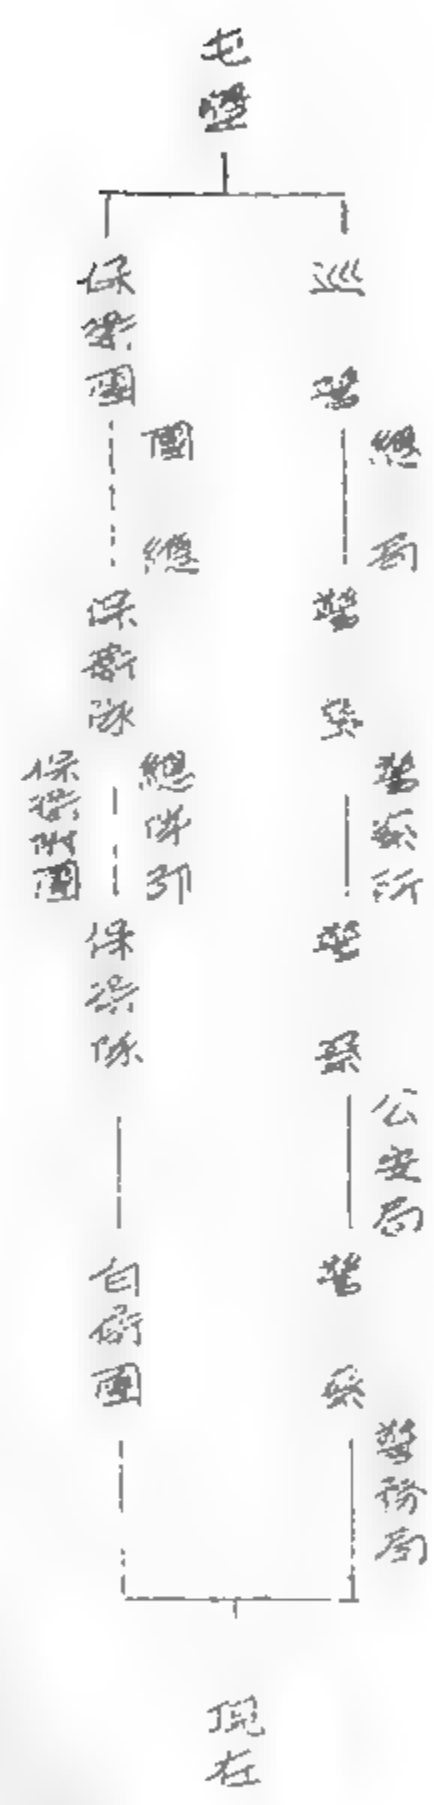 屯墾
巡警
總局
警察
警察所
警察
公安局
警察
警務局
保衛團
團總
保衛隊
總隊部
保衛隊
自衛團
現在